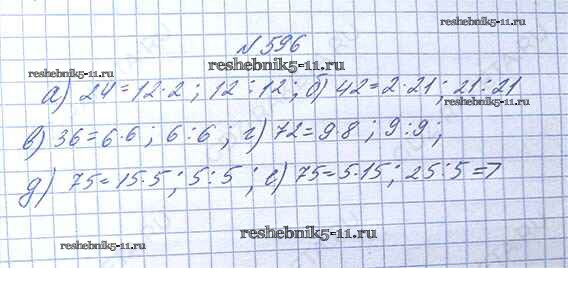 № 596
reshebnik5-11.ru
reshebnik5-11.ru
reshebnik5-11.ru
а) 24 = 12·2 ; 12 : 12 ; б) 42 = 2·21 ; 21 : 21
reshebnik5-11.ru
в) 36 = 6·6 ; 6 : 6 ; г) 72 = 9·8 ; 9 : 9 ;
reshebnik5-11.ru
д) 75 = 15·5 ; 5 : 5 ; е) 75 = 5·15 ; 25 : 5 = 7
reshebnik5-11.ru
reshebnik5-11.ru